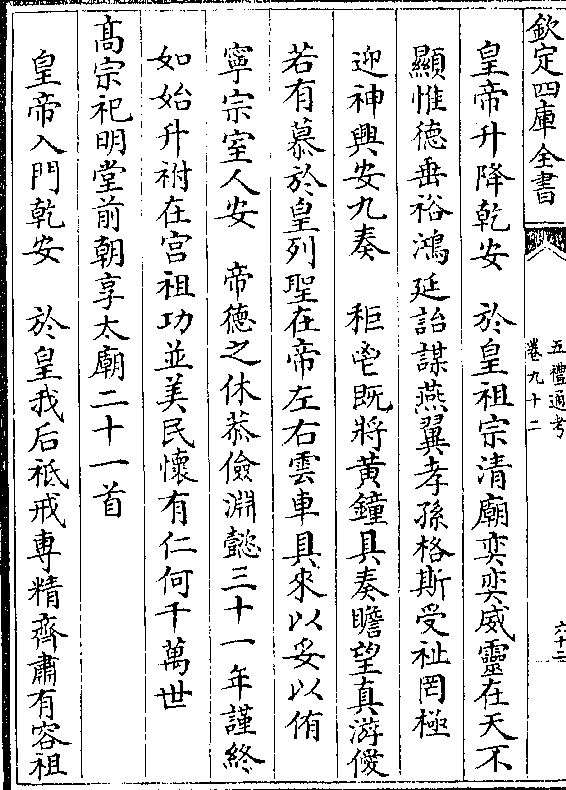 欽定四庫全書
五禮通考
卷九十二
六十二
皇帝升降乾安　於皇祖宗清廟奕奕威靈在天不
顯惟德垂裕鴻延詒謀燕翼孝孫格斯受祉罔極
迎神興安九奏　秬鬯既將黃鐘具奏瞻望真游僾
若有慕於皇列聖在帝左右雲車具來以妥以侑
寧宗室人安　帝德之休恭儉淵懿三十一年謹終
如始升祔在宮祖功並美民懷有仁何千萬世
高宗祀明堂前朝享太廟二十一首
皇帝入門乾安　於皇我后祗戒專精齊肅有容祖